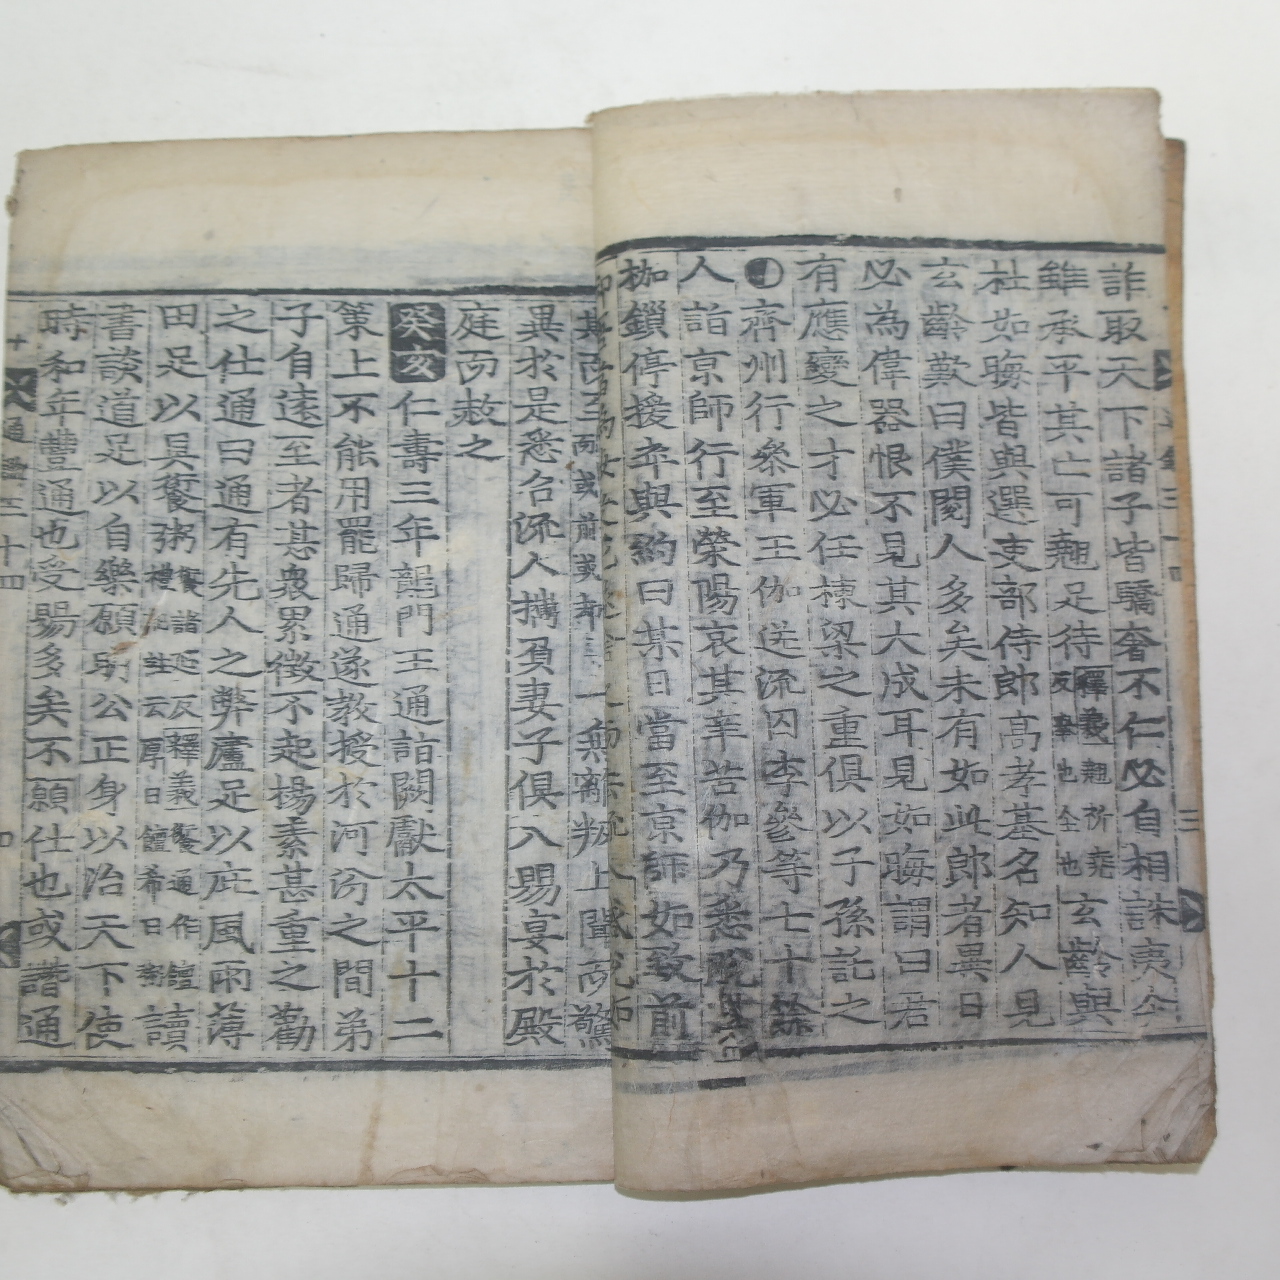 詐取天下諸子皆驕奢不仁必自相誅夷今
雖承平其亡可翹足待釋義翹祈堯反擧也企也玄齡與
杜如晦皆與選吏部侍郎高孝基名知人見
玄齡歎曰僕閱人多矣未有如此郎者異日
必為偉器恨不見其大成耳見如晦謂曰君
有應變之才必任棟梁之重俱以子孫託之
齊州行叅軍王伽送流囚李叅等七十餘
人詣京師行至榮陽哀其辛苦伽乃悉脫其
枷鎖停援卒與約曰某日當至京師如致前
一無離叛上聞而驚
異於是悉召流人携負妻子俱入賜宴於殿
庭而赦之
癸亥仁壽三年龍門王通詣闕獻太平十二
策上不能用罷歸通遂教授於河汾之間弟
子自遠至者甚衆累徵不起楊素甚重之勸
之仕通曰通有先人之弊廬足以庇風雨薄
田足以具饘粥饘諸延反釋義饘通作饘禮記註云厚曰饘希曰粥讀
書談道足以自樂願明公正身以治天下使
時和年豐通也受賜多矣不願仕也或譖通
通鑑三 十四